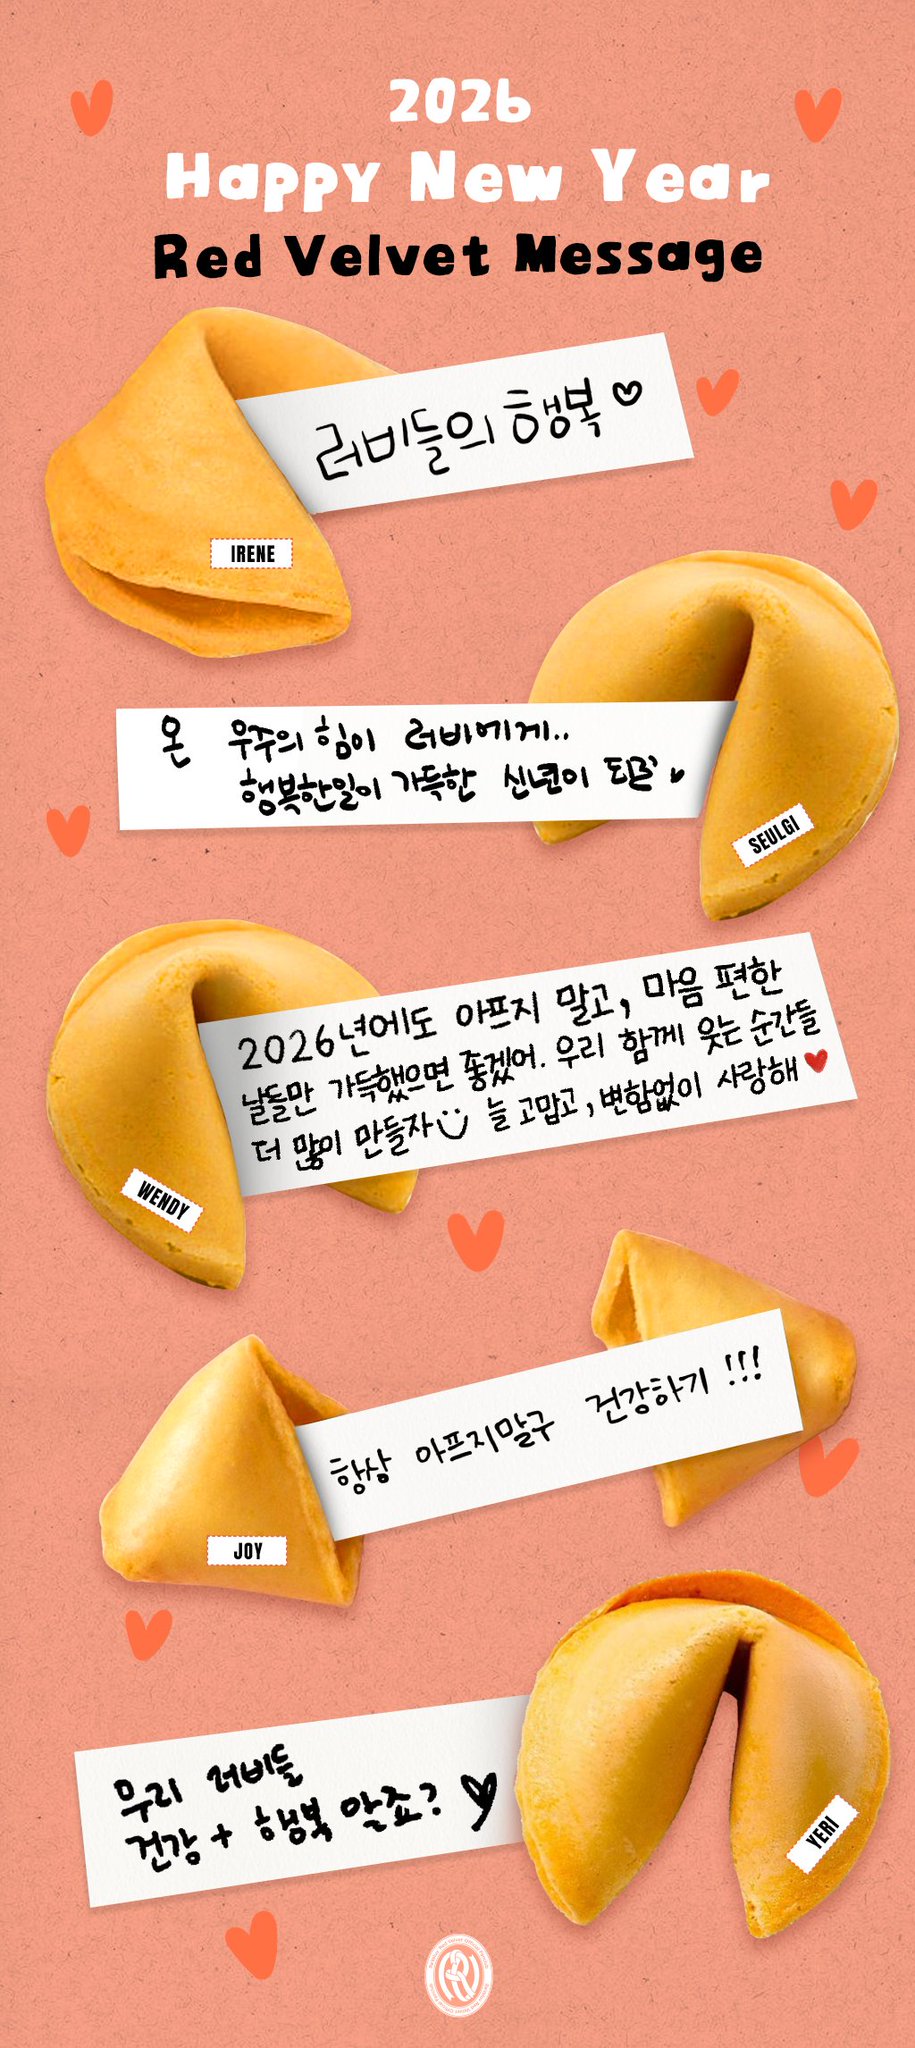 2026
Happy New Year
Red Velvet Message
러비들의 행복♡
IRENE
온 우주의 힘이 러비에게..
행복한일이 가득한 신년이 되길
SEULGI
2026년에도 아프지 말고, 마음 편한
날들만 가득했으면 좋겠어. 우리 함께 웃는 순간들
더 많이 만들자 늘 고맙고, 변함없이 사랑해♥
WENDY
항상 아프지말구 건강하기!!!
JOY
우리 러비들
건강 + 행복 알죠?♡
YERI